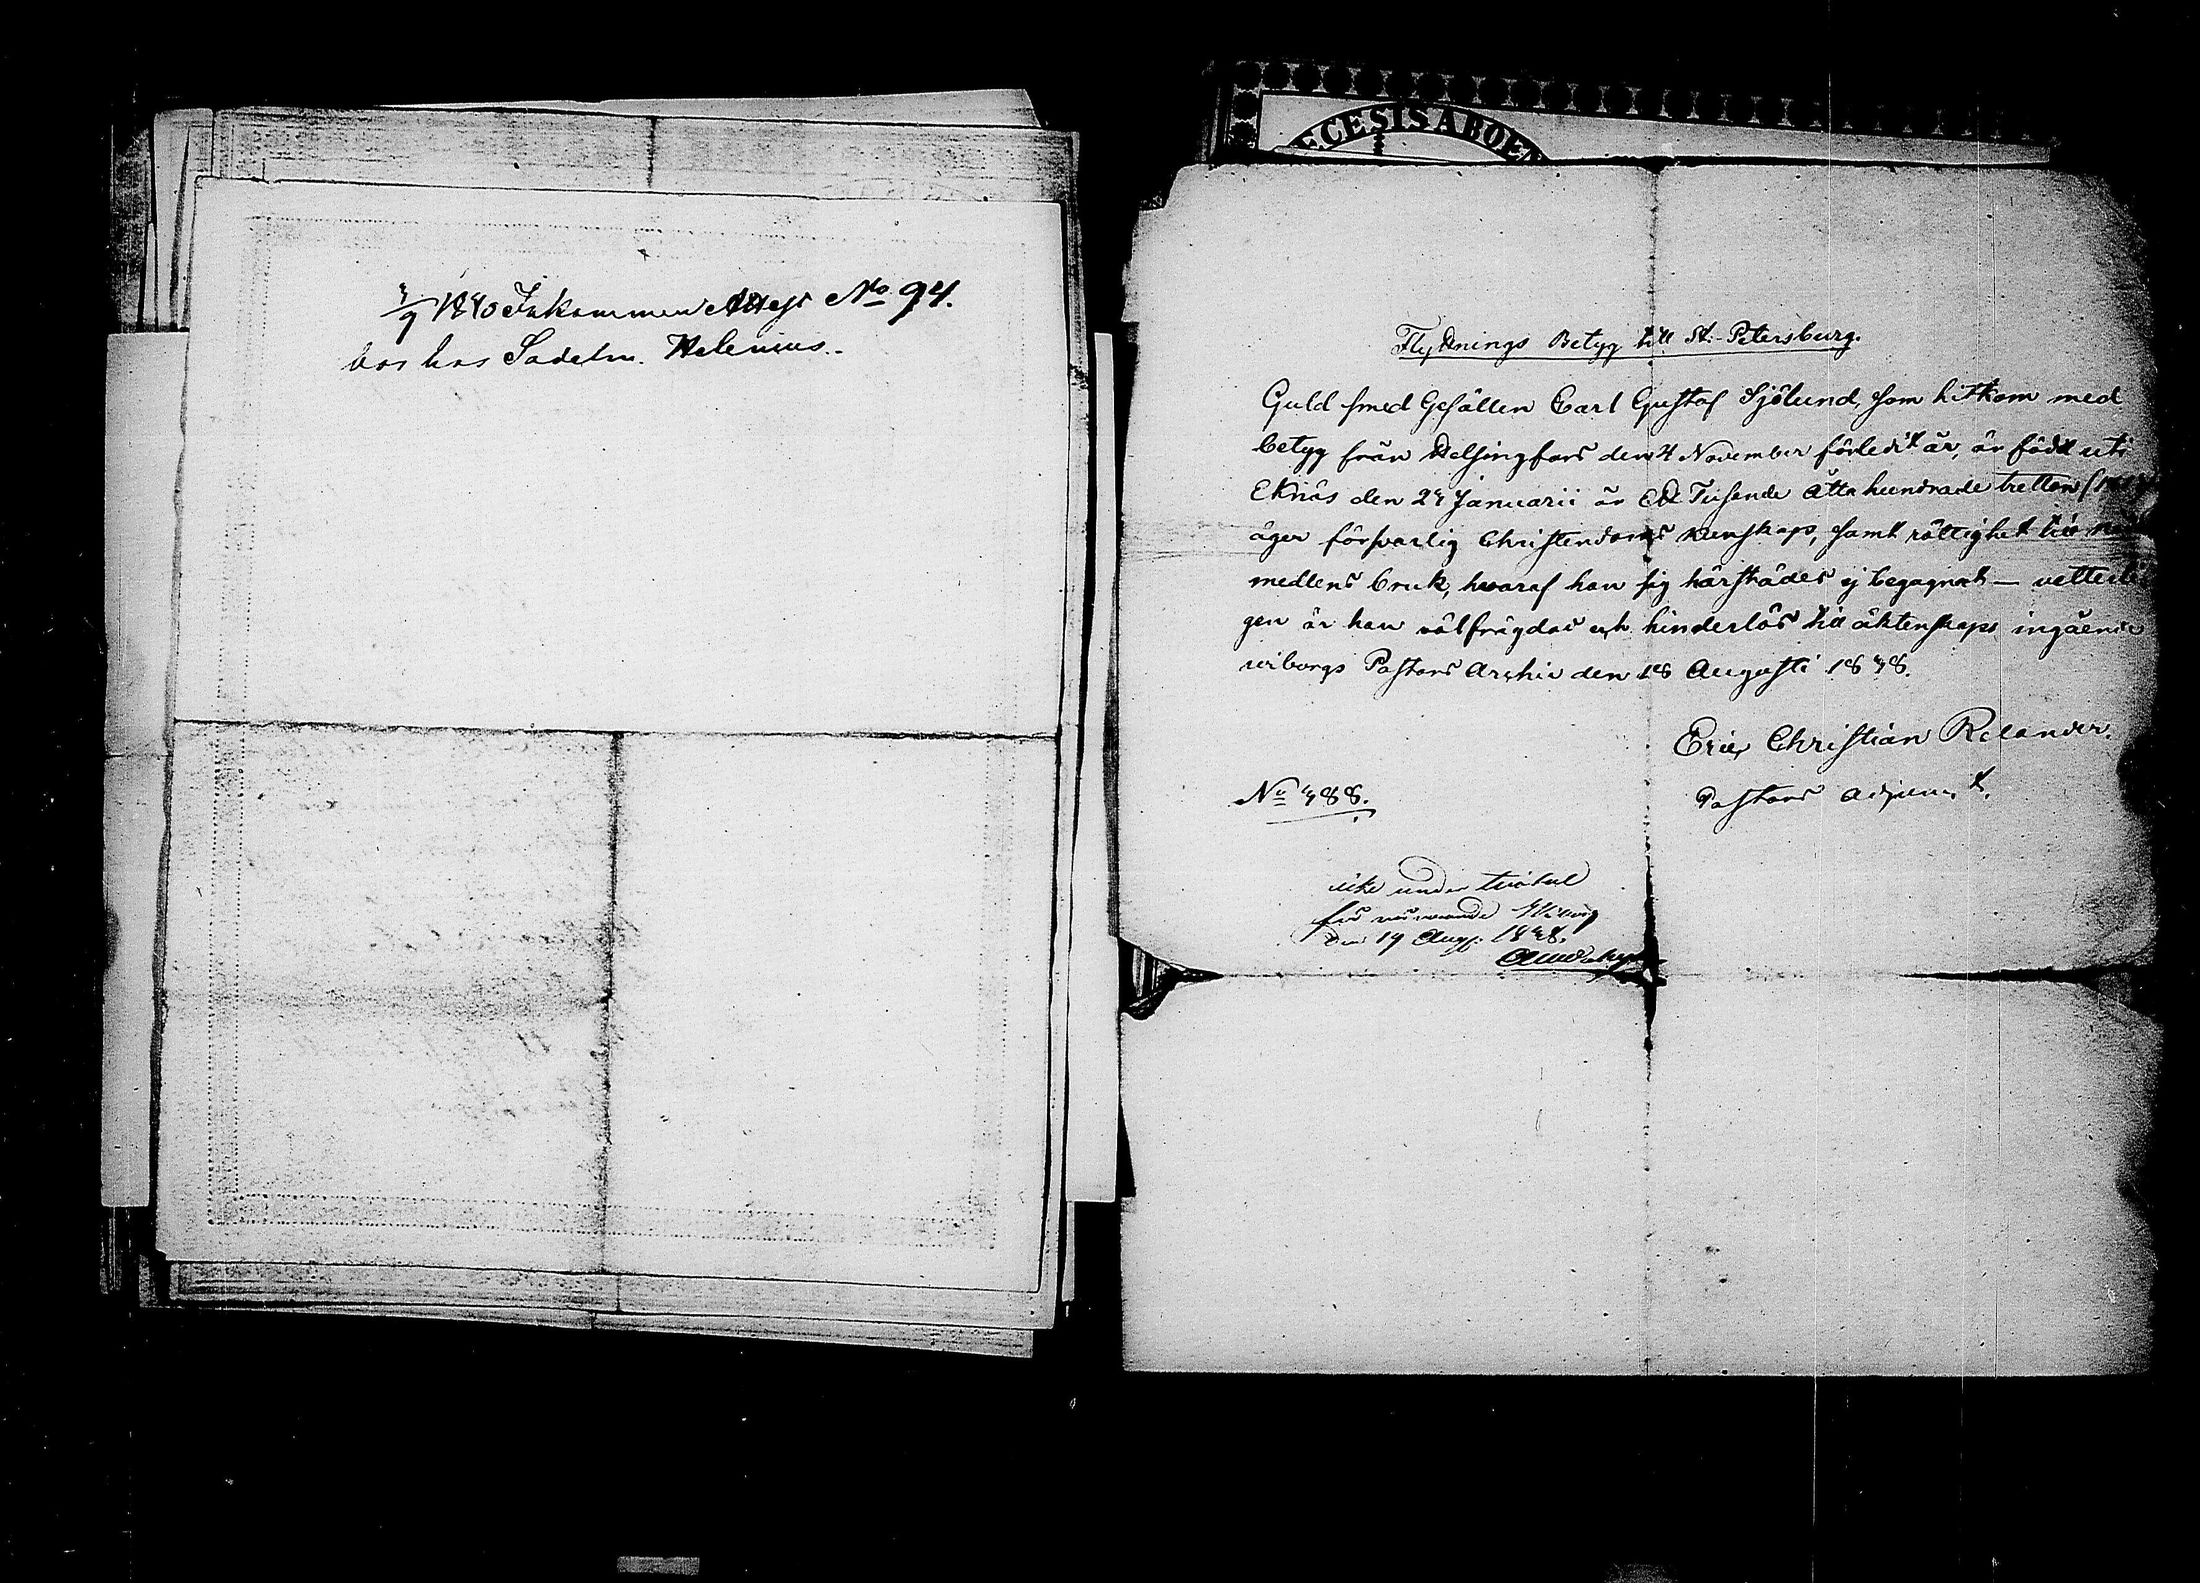 3/9 1840 Inkommen Attest No 94.
bor hos Sadelm. Helenius.
ECESIS ABOEN
Flyttnings Betyg till St. Petersburg.
Guld smed Gesällen Carl Gustaf Sjölund, som hitkom med
betyg från Helsingfors den 4 November förledit år, är född uti
Eknäs den 24 Januarii år Ett Tusende åtta hundrade tretton
äger försvarlig Christendoms kunskap, samt rättighet till
medlens bruk, hvaraf han sig härstädes ej begagnat — vetterli
gen är han välfrägdad och hinderlös till äktenskaps ingående
wiborgs Pastors Archiv den 18 Augusti 1838.
Eric Christian Relander.
Pastors adjunct.
No 388.
icke under
för närvarande Wiborg
den 19 Aug. 1838.